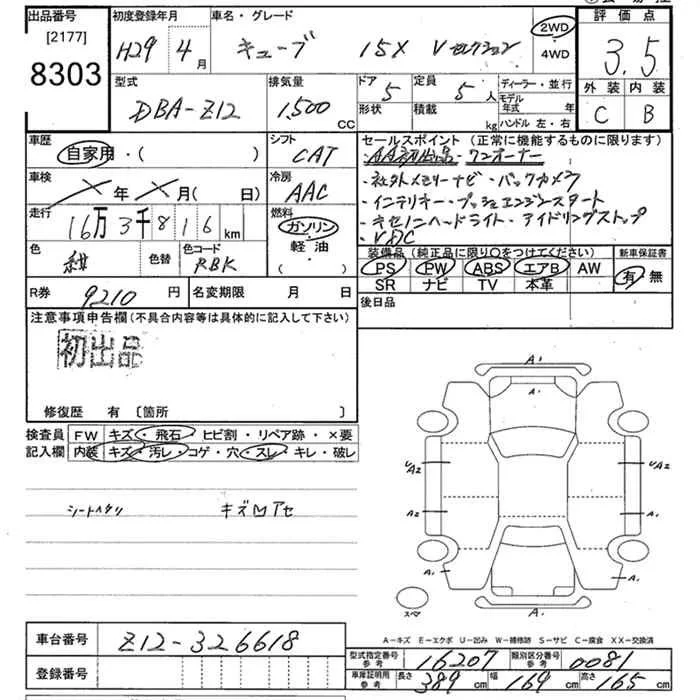 出品番号
[2177]
8303
初度登録年月
H29 4月
車名・グレード
キューブ 15X Vセレクション
2WD
4WD
評価点
3.5
外装 内装
C B
型式
DBA-Z12
排気量
1,500 CC
ドア 5
形状
定員 5人
積載 kg
ディーラー・並行
モデル年式 年
ハンドル 左・右
車歴
自家用・( )
シフト
CAT
車検
年 月( 日)
冷房
AAC
走行
16万3千816km
燃料
ガソリン
軽油・
( )
色
紺
色替
色コード
RBK
セールスポイント (正常に機能するものに限ります)
・AA初出品・ワンオーナー
・社外メモリーナビ・バックカメラ
・インテリキー・プッシュエンジンスタート
・キセノンヘッドライト・アイドリングストップ
・VDC
装備品(純正品に限り〇をつけてください)
PS PW ABS エアB AW
SR ナビ TV 本革
新車保証書
有 無
R券
9210円
名変期限 月 日
後日品
注意事項申告欄(不具合内容等は具体的に記入して下さい)
初出品
修復歴 有 〔箇所 〕
検査員記入欄
FW キズ・飛石・ヒビ割・リペア跡・×要
内装 キズ・汚レ・コゲ・穴・スレ・キレ・破レ
シートヘタリ キズ凹アセ
A1
A1
UA2
UA2
A2
A1
A1
A1
A1
スペア
A-キズ E-エクボ U-凹み W-補修跡 S-サビ C-腐食 XX-交換済
車台番号
Z12-326618
登録番号
型式指定番号 参考
16207
類別区分番号 参考
0081
車庫証明用 参考
長さ 389cm 幅 169cm 高さ 165cm